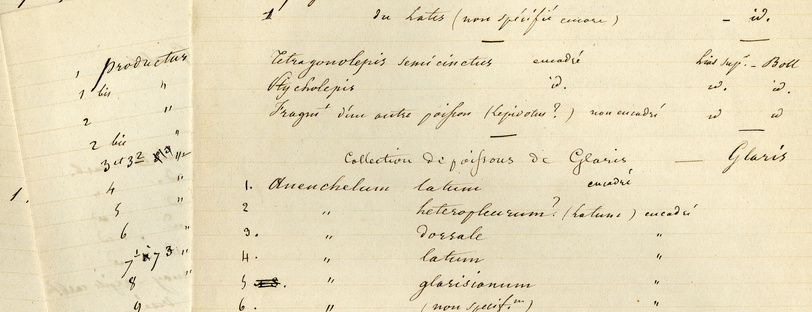 1 du Latis (non spécifié encore) - id.
Tetragonolepis semicinctus encadré Lias sup. - Boll
Ptycholepis id. id. id.
Fragmt d'un autre poisson (Lepidotus?) non encadré id id
Collection de poissons de Glaris — Glaris
1. Anenchelum latum encadré
2 " heteropleurum? (latum) encadré
3. " dorsale "
4. " latum
5. " glarisianum "
6. " (non specif.) "
1 productus
1 bis "
2 "
2 bis "
3 et 3 2
1. 4 "
5 "
6 "
7 "
8 "
9 "